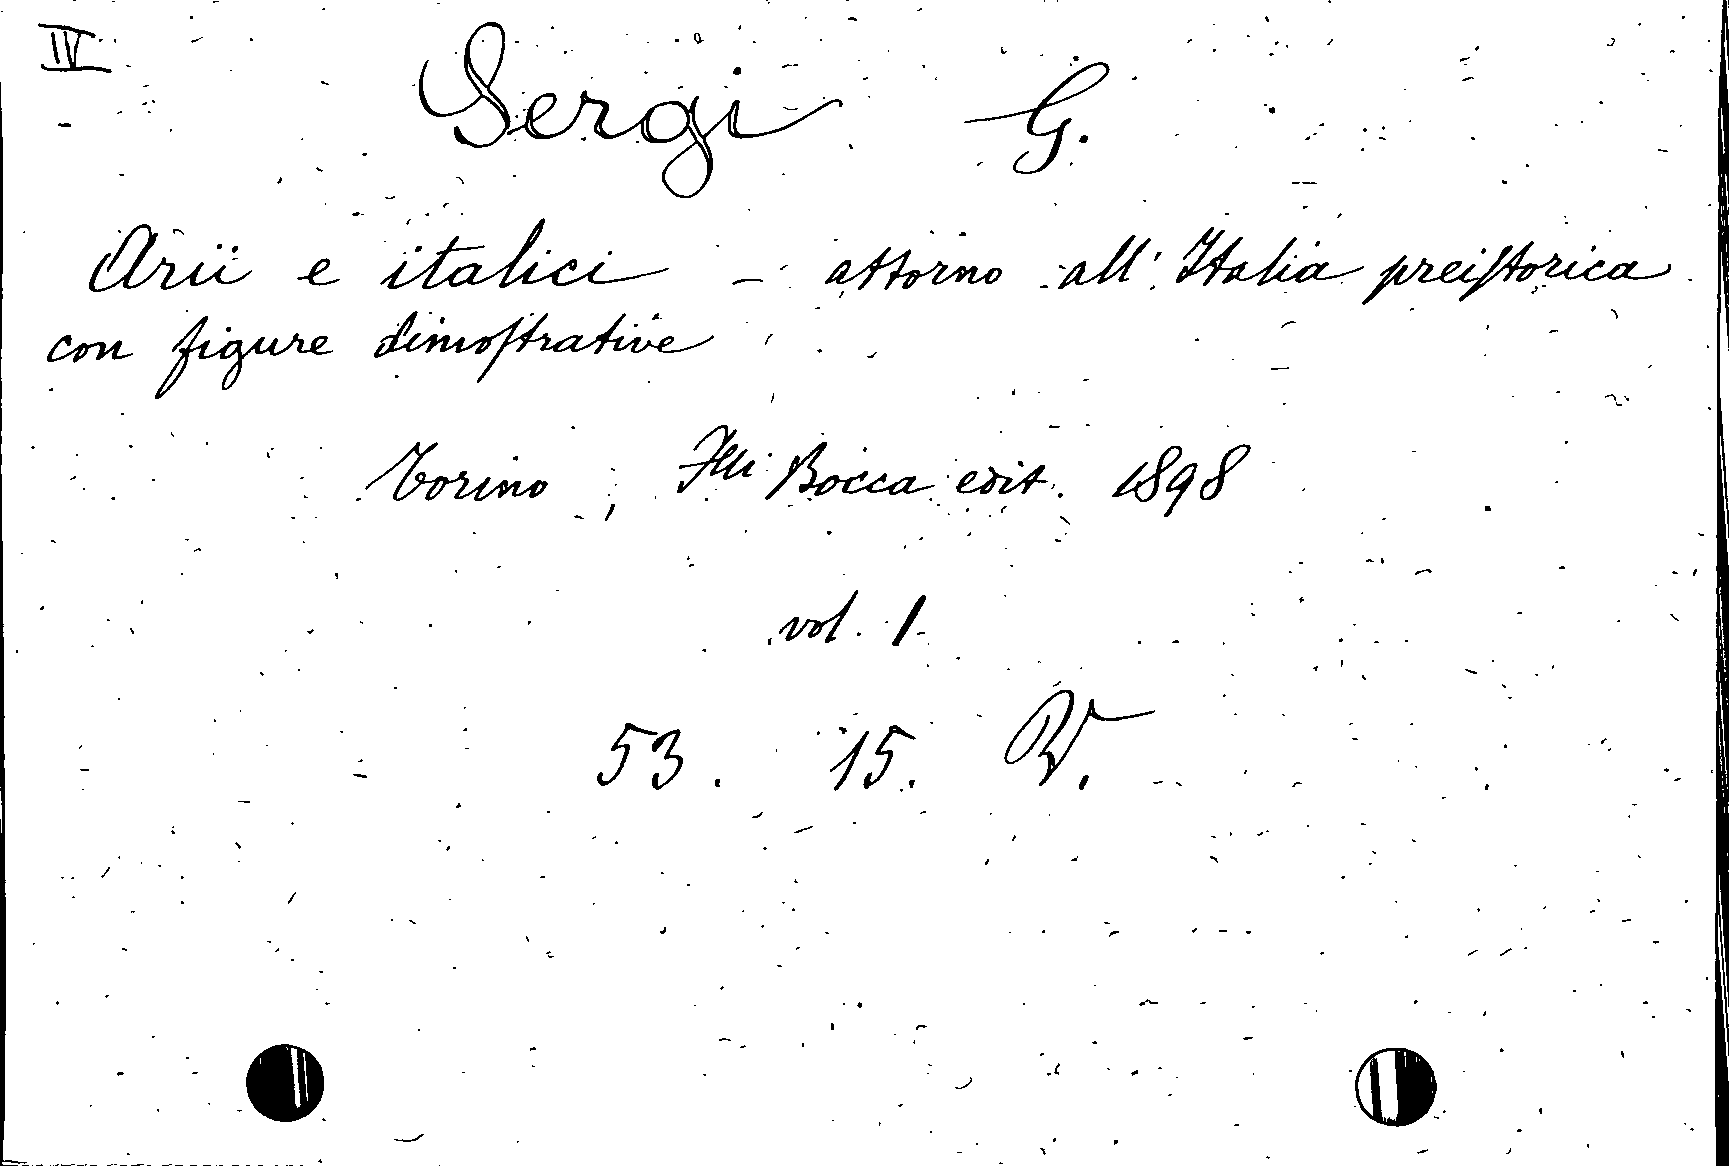 IV
Sergi G.
Arii e italici - attorno all' Italia preistorica
con figure dimostrative
Torino, Flli Bocca edit. 1898
vol. 1
53. 15. W.